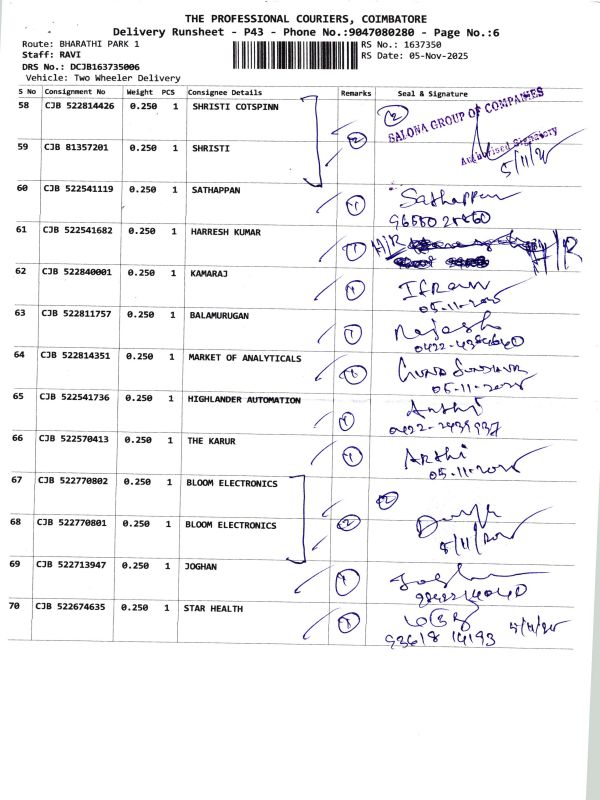 THE PROFESSIONAL COURIERS, COIMBATORE
Delivery Runsheet - P43 - Phone No.:9047080280 - Page No.:6
Route: BHARATHI PARK 1
Staff: RAVI
DRS No.: DCJB163735006
Vehicle: Two Wheeler Delivery
RS No.: 1637350
RS Date: 05-Nov-2025
S No Consignment No Weight PCS Consignee Details Remarks Seal & Signature
58 CJB 522814426 0.250 1 SHRISTI COTSPINN 2 2
SALONA GROUP OF COMPANIES
Authorised Signatory
59 CJB 81357201 0.250 1 SHRISTI 5/11/25
60 CJB 522541119 0.250 1 SATHAPPAN 1 Sathappan
61 CJB 522541682 0.250 1 HARRESH KUMAR 1 H/R H/R
62 CJB 522840001 0.250 1 KAMARAJ 1
05-11-2025
63 CJB 522811757 0.250 1 BALAMURUGAN 1 Rajesh
64 CJB 522814351 MARKET OF ANALYTICALS 0.250 1
05-11-2025
65 CJB 522541736 0.250 1 HIGHLANDER AUTOMATION 1 Arthi
0422-2439937
66 CJB 522570413 0.250 1 THE KARUR 1 Arthi
05-11-2025
67 CJB 522770802 0.250 1 BLOOM ELECTRONICS 2
68 CJB 522770801 0.250 1 BLOOM ELECTRONICS 2
5/11/2025
69 CJB 522713947 0.250 1 JOGHAN 1
70 CJB 522674635 0.250 1 STAR HEALTH 1
93618 14193 5/11/25